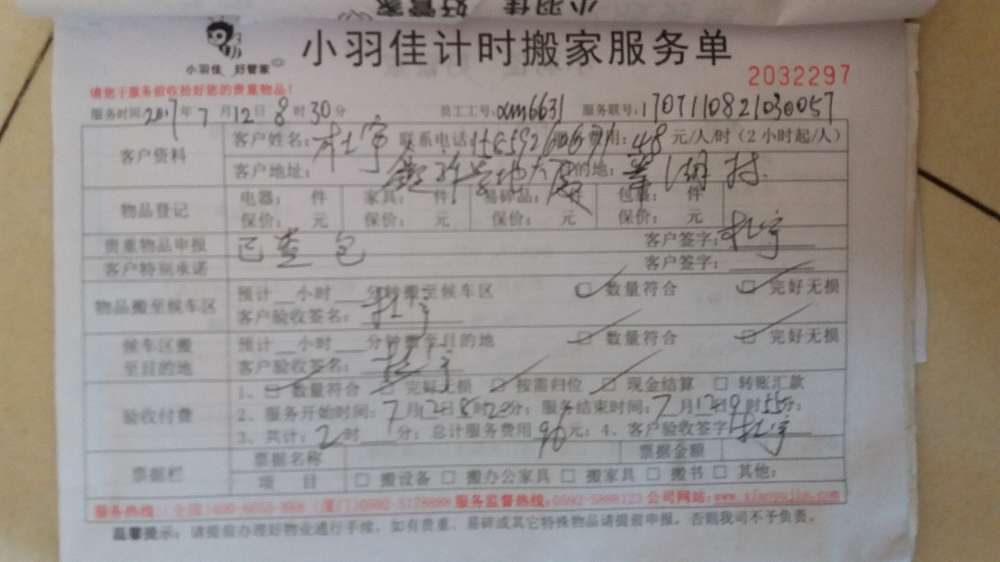 小羽佳 好管家
小羽佳 好管家
小羽佳计时搬家服务单
2032297
请您于服务前收拾好您的贵重物品!
服务时间2017年7月12日8时30分 员工工号:xm6631 服务联号:170711082103057
客户资料
客户姓名:杜宇 联系电话 费用:48元/人/时(2小时起/人)
客户地址: 目的地:
物品登记
电器: 件 家具: 件 易碎品: 件 包裹: 件
保价: 元 保价: 元 保价: 元 保价: 元
贵重物品申报 已查包 客户签字:杜宇
客户特别承诺 客户签字:
物品搬至候车区
预计__小时__分钟搬至候车区 □数量符合 □完好无损
客户验收签名:杜宇
候车区搬至目的地
预计__小时__分钟搬至目的地 □数量符合 □完好无损
客户验收签名:杜宇
验收付费
1、□数量符合 □完好无损 □按需归位 □现金结算 □转账汇款
2、服务开始时间:7月12日8时20分;服务结束时间:7月12日9时55分;
3、共计:2时__分;总计服务费用96元;4、客户验收签字杜宇
票据栏
票据名称 票据金额
项目 □搬设备 □搬办公家具 □搬家具 □搬书 □其他:
服务热线: 服务监督热线: 公司网站:www.xiaoyujia.com
温馨提示:请提前办理好物业通行手续,如有贵重、易碎或其它特殊物品请提前申报,否则我司不予负责。